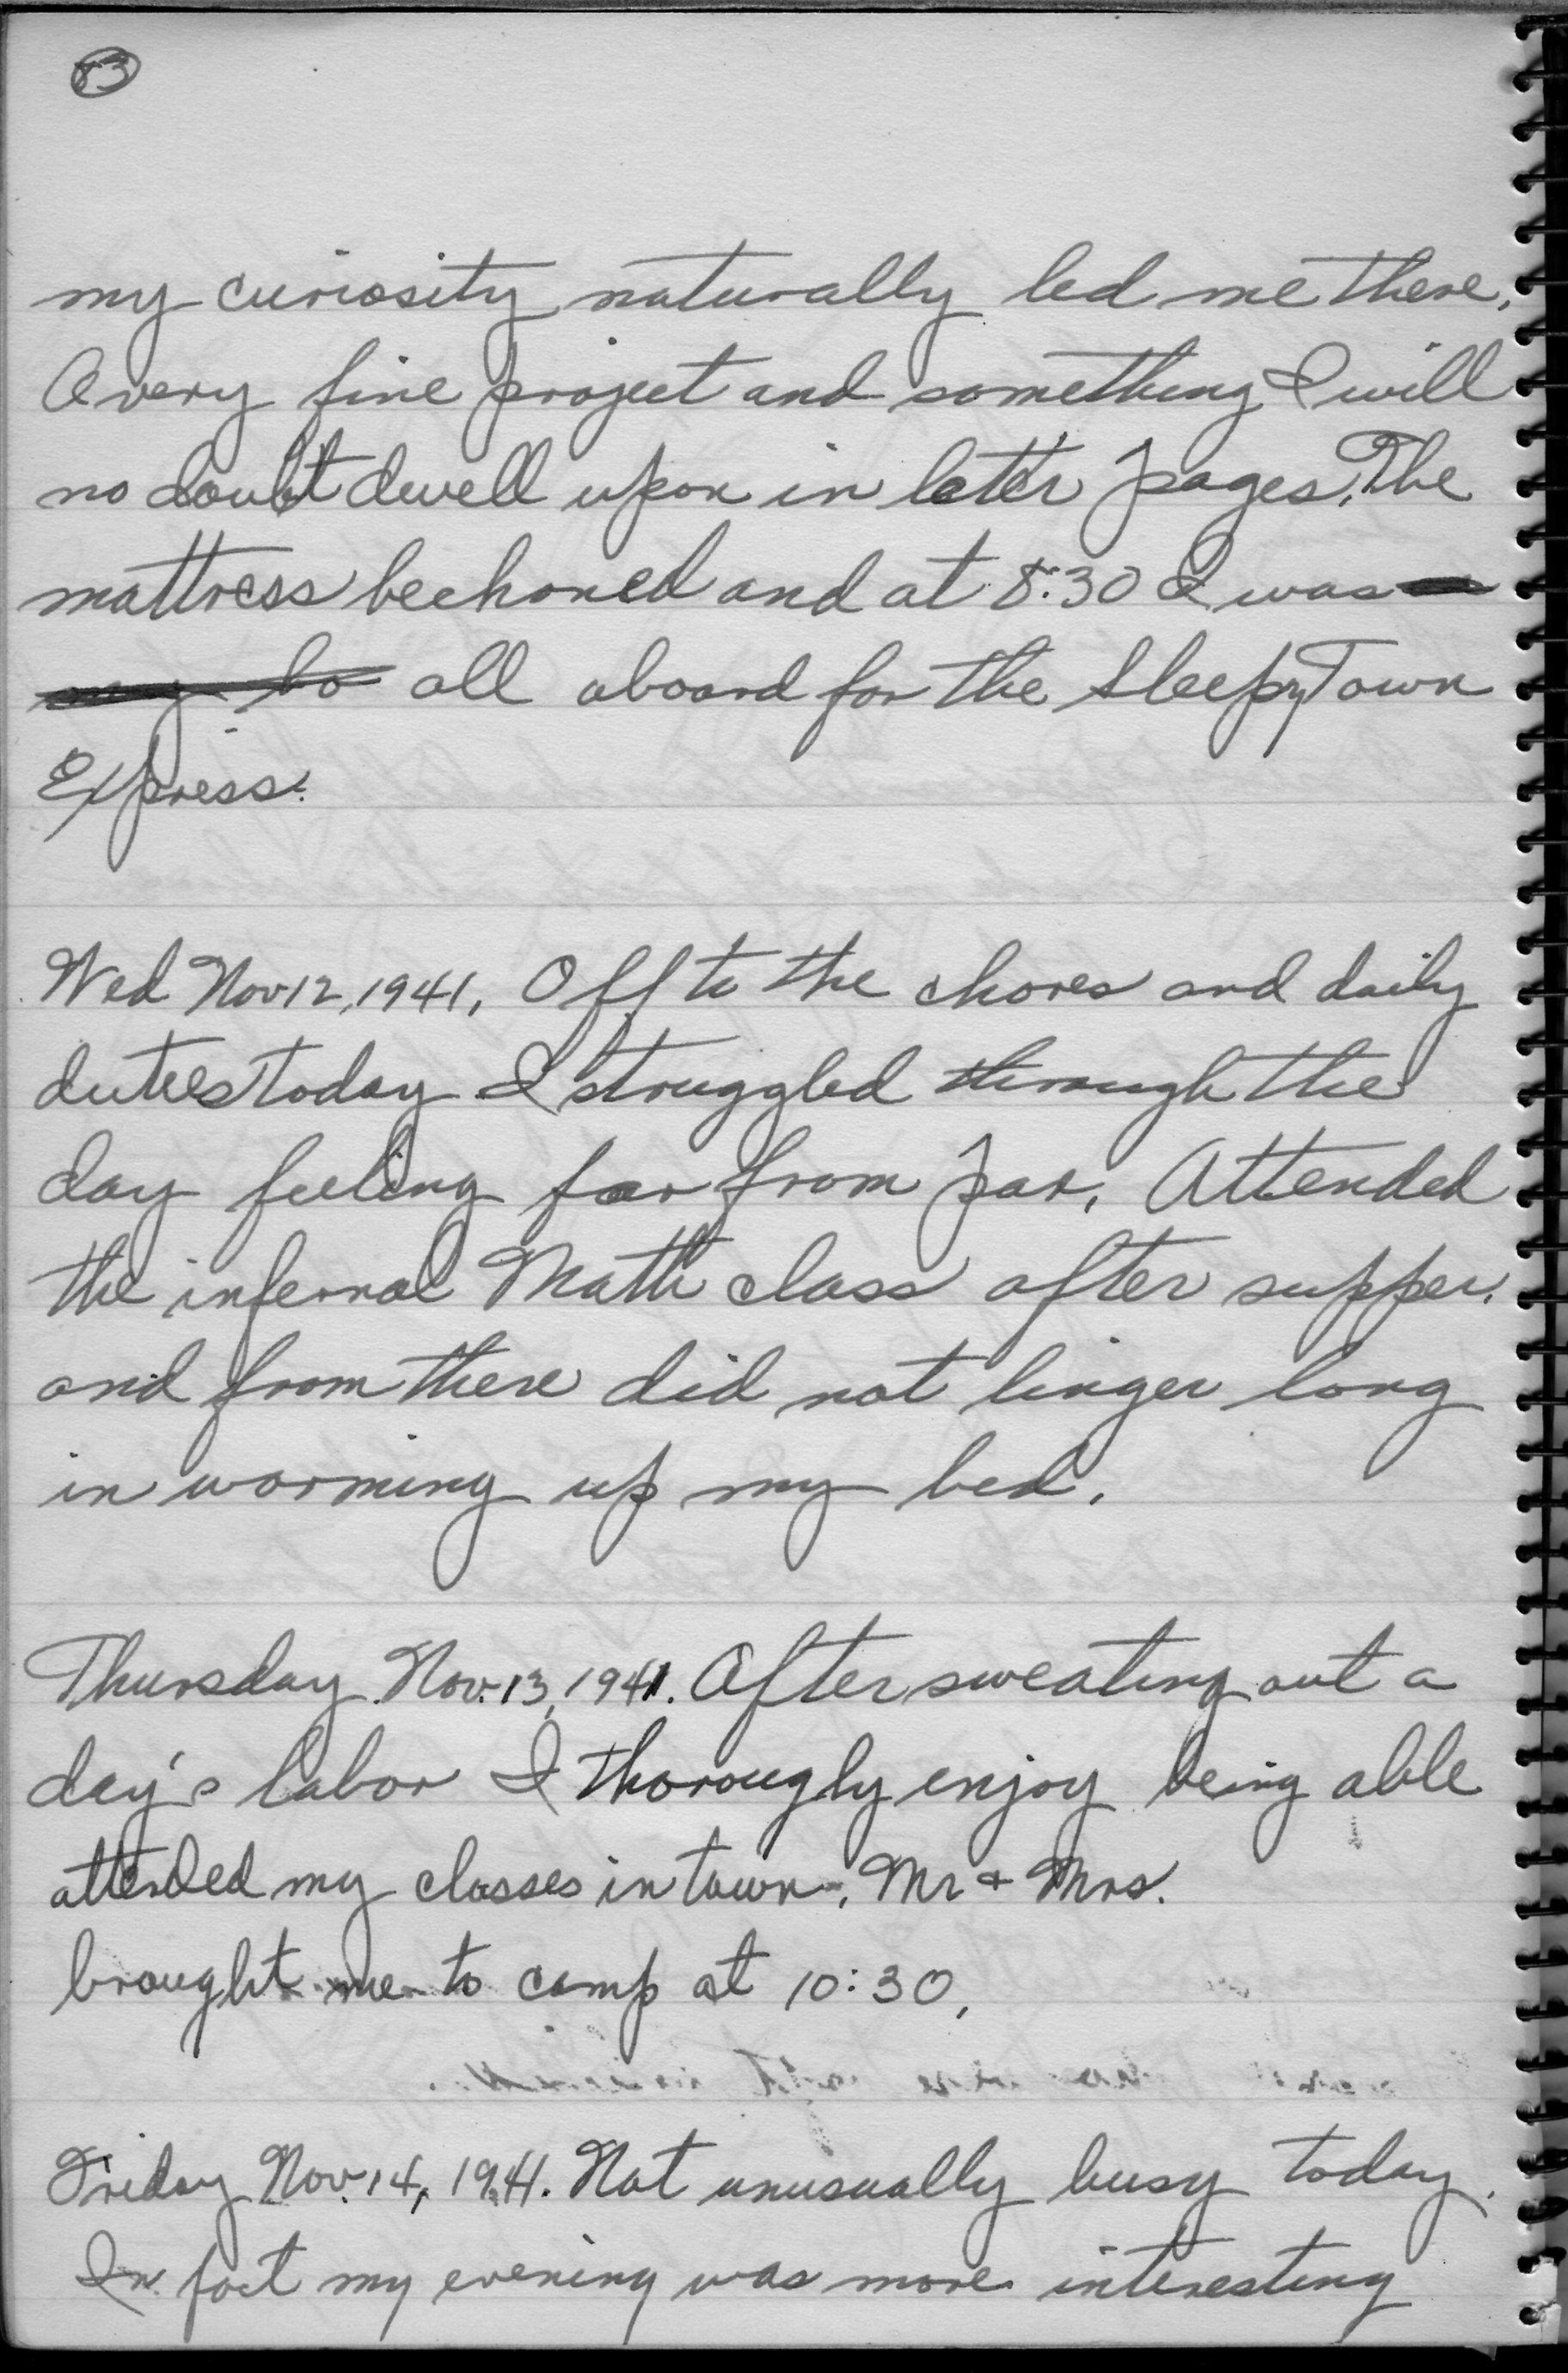 83
my curiosity naturally led me there.
A very fine project and something I will
no doubt dwell upon in later pages. The
mattress beckoned and at 8:30 I was
all aboard for the SleepyTown
Express.
Wed Nov 12, 1941. Off to the chores and daily
duties today I struggled through the
day feeling far from par. Attended
the infernal Math class after supper.
and from there did not linger long
in warming up my bed.
Thursday Nov. 13, 1941. After sweating out a
day's labor I thorougly enjoy being able
attended my classes in town. Mr + Mrs.
brought me to camp at 10:30.
Friday Nov. 14, 1941. Not unusually busy today.
In fact my evening was more interesting